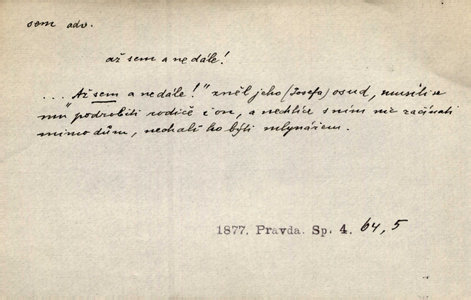 sem adv.
až sem a ne dále!
... "Až sem a ne dále!" zněl jeho (Josefa) osud, musili se
mu podrobiti rodiče i on, a nechtíce s ním nic začínati
mimo dům, nechali ho býti mlynářem.
1877. Pravda. Sp. 4. 64,5